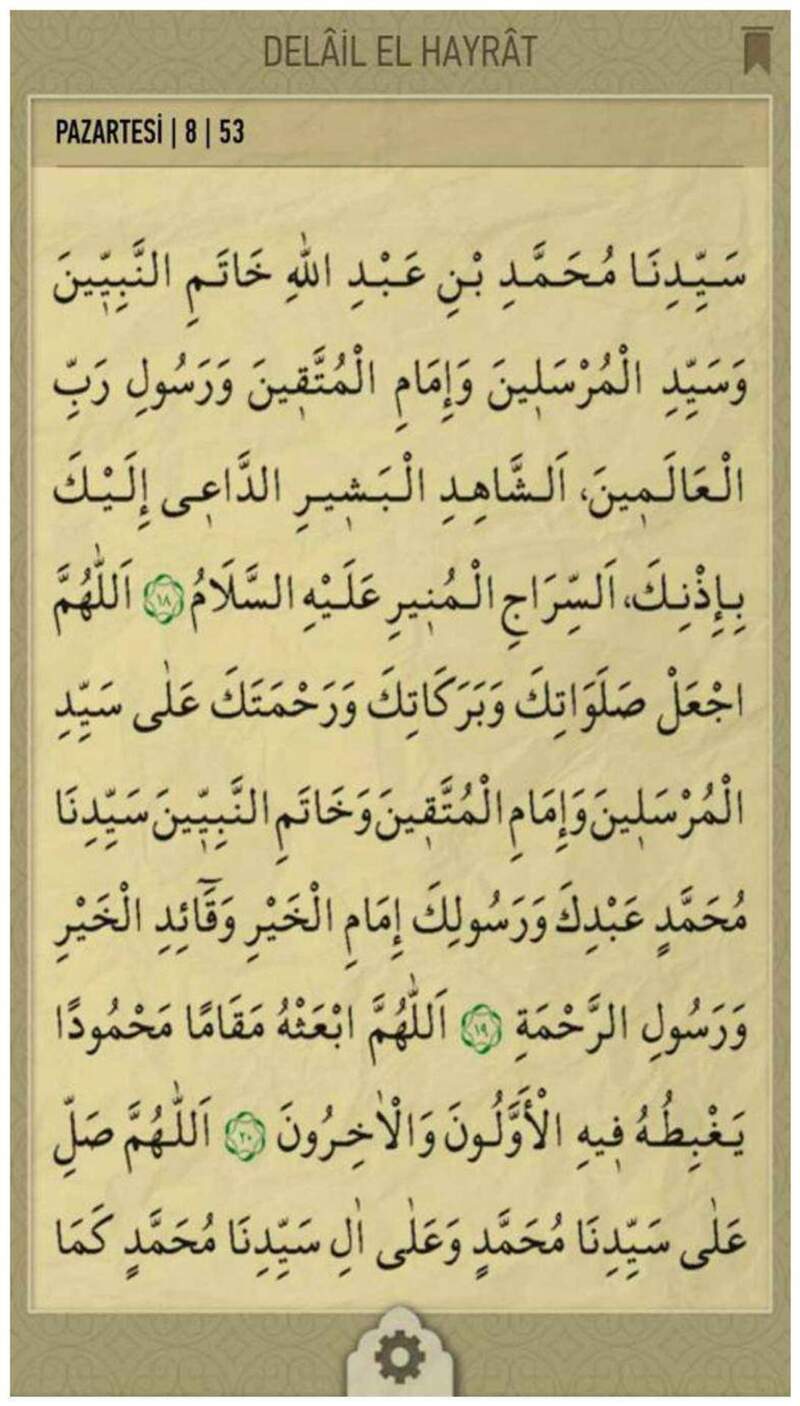 DELÂİL EL HAYRÂT
PAZARTESİ | 8 | 53
سَيِّدِنَا مُحَمَّدِ بْنِ عَبْدِ اللّٰهِ خَاتَمِ النَّبِيّ۪ينَ
وَسَيِّدِ الْمُرْسَل۪ينَ وَإِمَامِ الْمُتَّق۪ينَ وَرَسُولِ رَبِّ
الْعَالَم۪ينَ، اَلشَّاهِدِ الْبَش۪يرِ الدَّاع۪ى إِلَيْكَ
بِإِذْنِكَ، اَلسِّرَاجِ الْمُن۪يرِ عَلَيْهِ السَّلَامُ ١٨ اَللّٰهُمَّ
اجْعَلْ صَلَوَاتِكَ وَبَرَكَاتِكَ وَرَحْمَتَكَ عَلٰى سَيِّدِ
الْمُرْسَل۪ينَ وَإِمَامِ الْمُتَّق۪ينَ وَخَاتَمِ النَّبِيّ۪ينَ سَيِّدِنَا
مُحَمَّدٍ عَبْدِكَ وَرَسُولِكَ إِمَامِ الْخَيْرِ وَقَٓائِدِ الْخَيْرِ
وَرَسُولِ الرَّحْمَةِ ١٩ اَللّٰهُمَّ ابْعَثْهُ مَقَامًا مَحْمُودًا
يَغْبِطُهُ ف۪يهِ الْأَوَّلُونَ وَالْاٰخِرُونَ ٢٠ اَللّٰهُمَّ صَلِّ
عَلٰى سَيِّدِنَا مُحَمَّدٍ وَعَلٰى اٰلِ سَيِّدِنَا مُحَمَّدٍ كَمَا